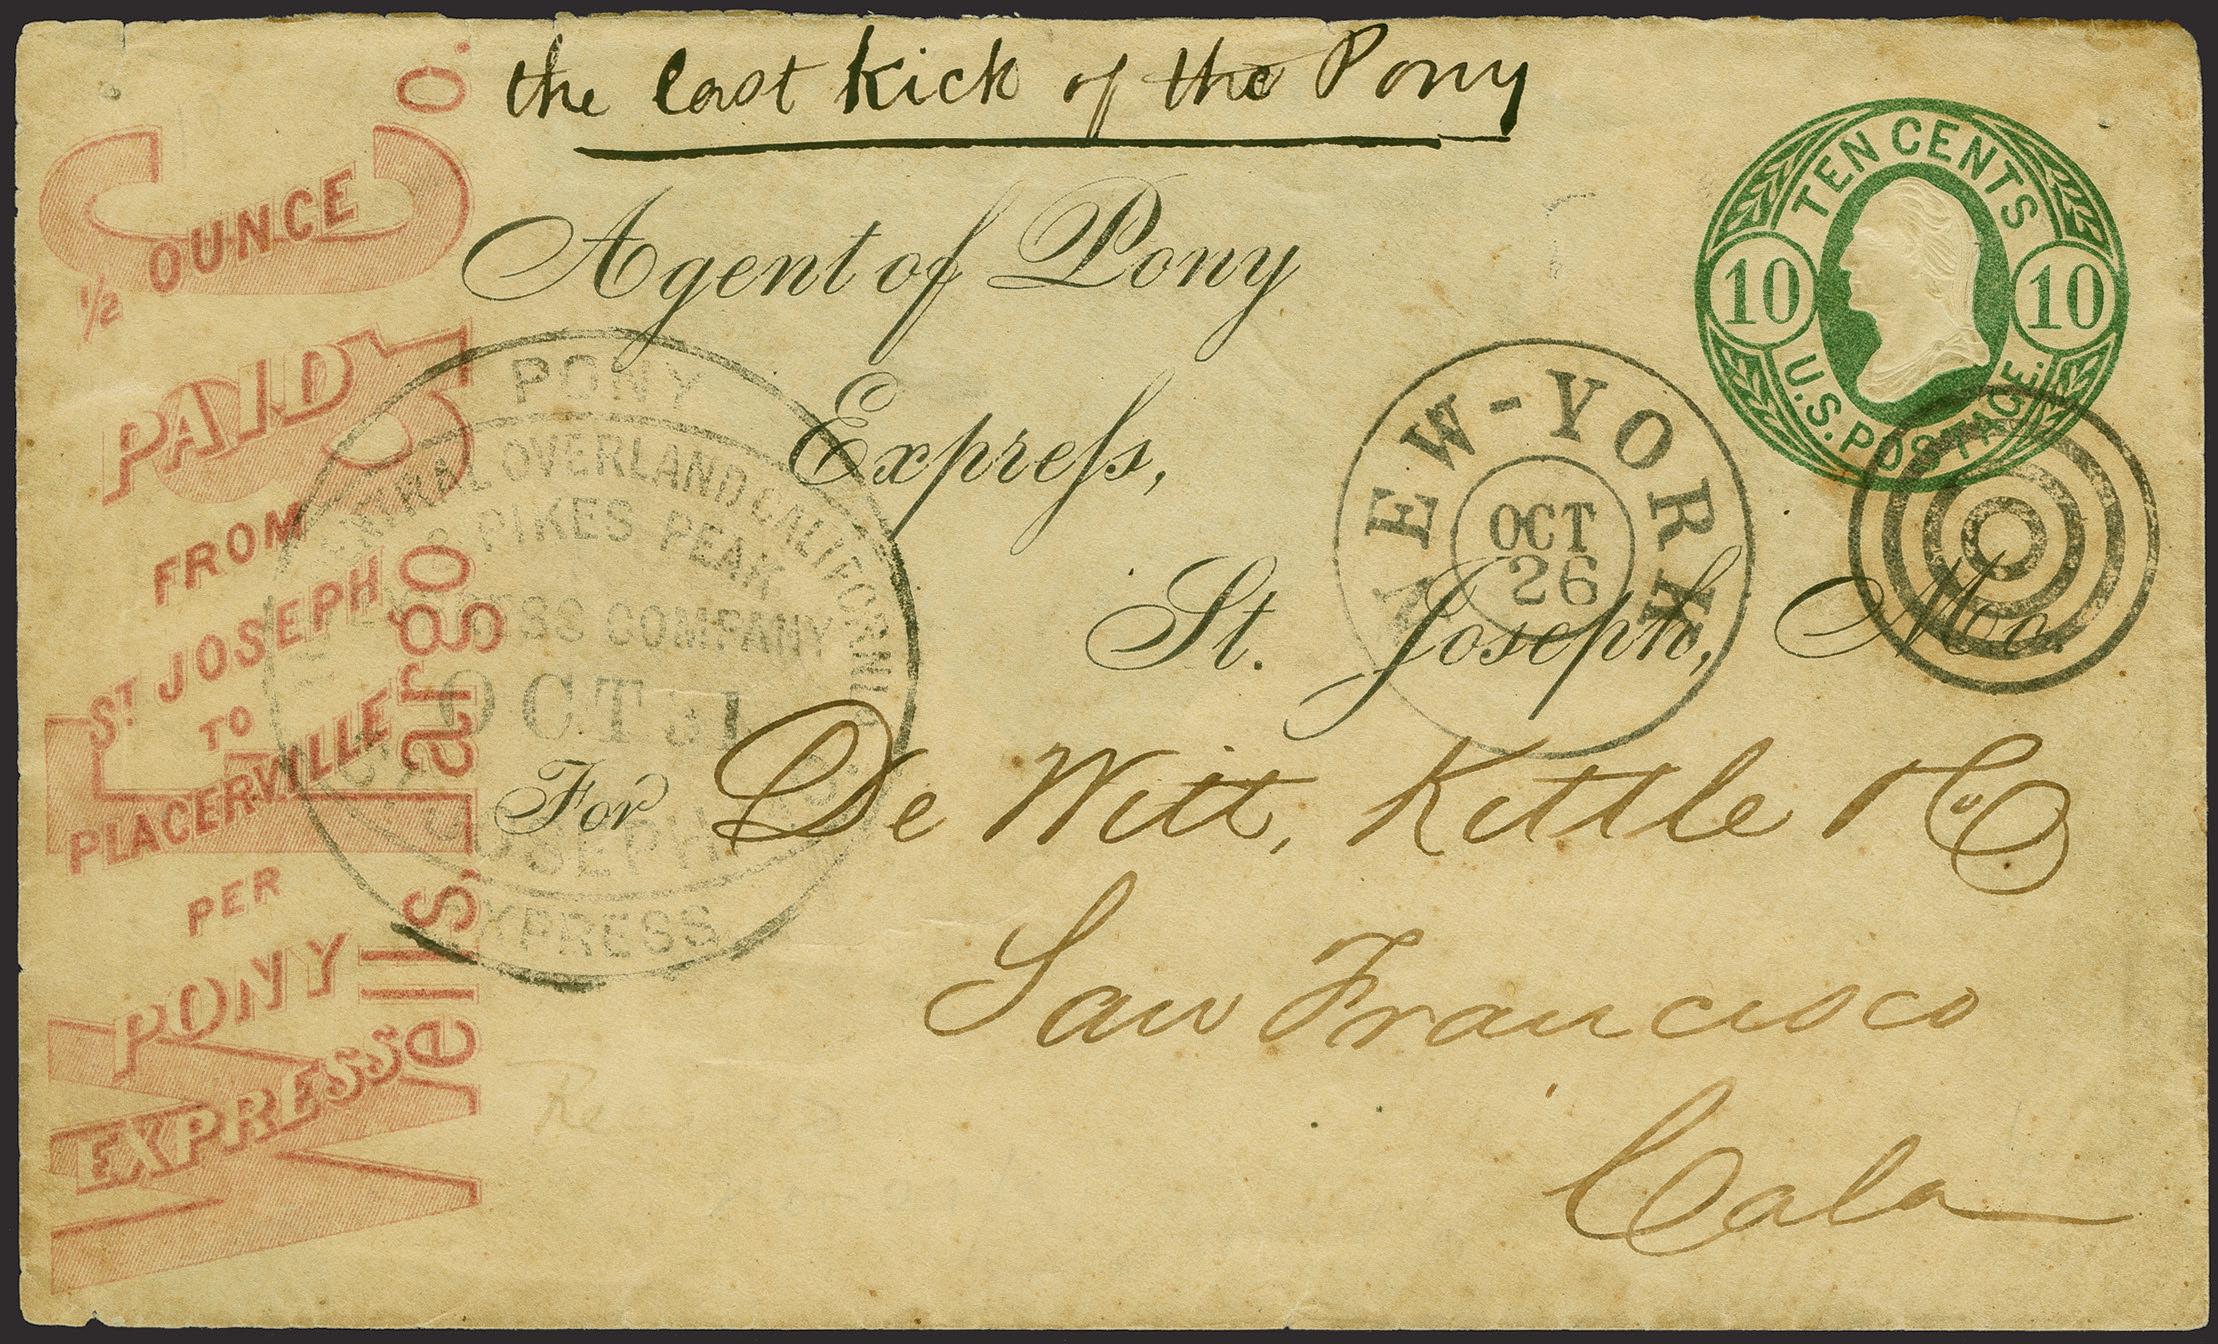 the last kick of the Pony
Agent of Pony
Express,
St. Joseph, Mo.
For De Witt, Kittle & Co
San Francisco
Cala
TEN CENTS
10 10
U.S. POSTAGE.
NEW-YORK
OCT
26
PONY
CENTRAL OVERLAND CALIFORNIA
& PIKES PEAK
EXPRESS COMPANY
OCT 31
JOSEPH
EXPRESS
Wells, Fargo & Co.
1/2 OUNCE
PAID
FROM
ST JOSEPH
TO
PLACERVILLE
PER
PONY
EXPRESS